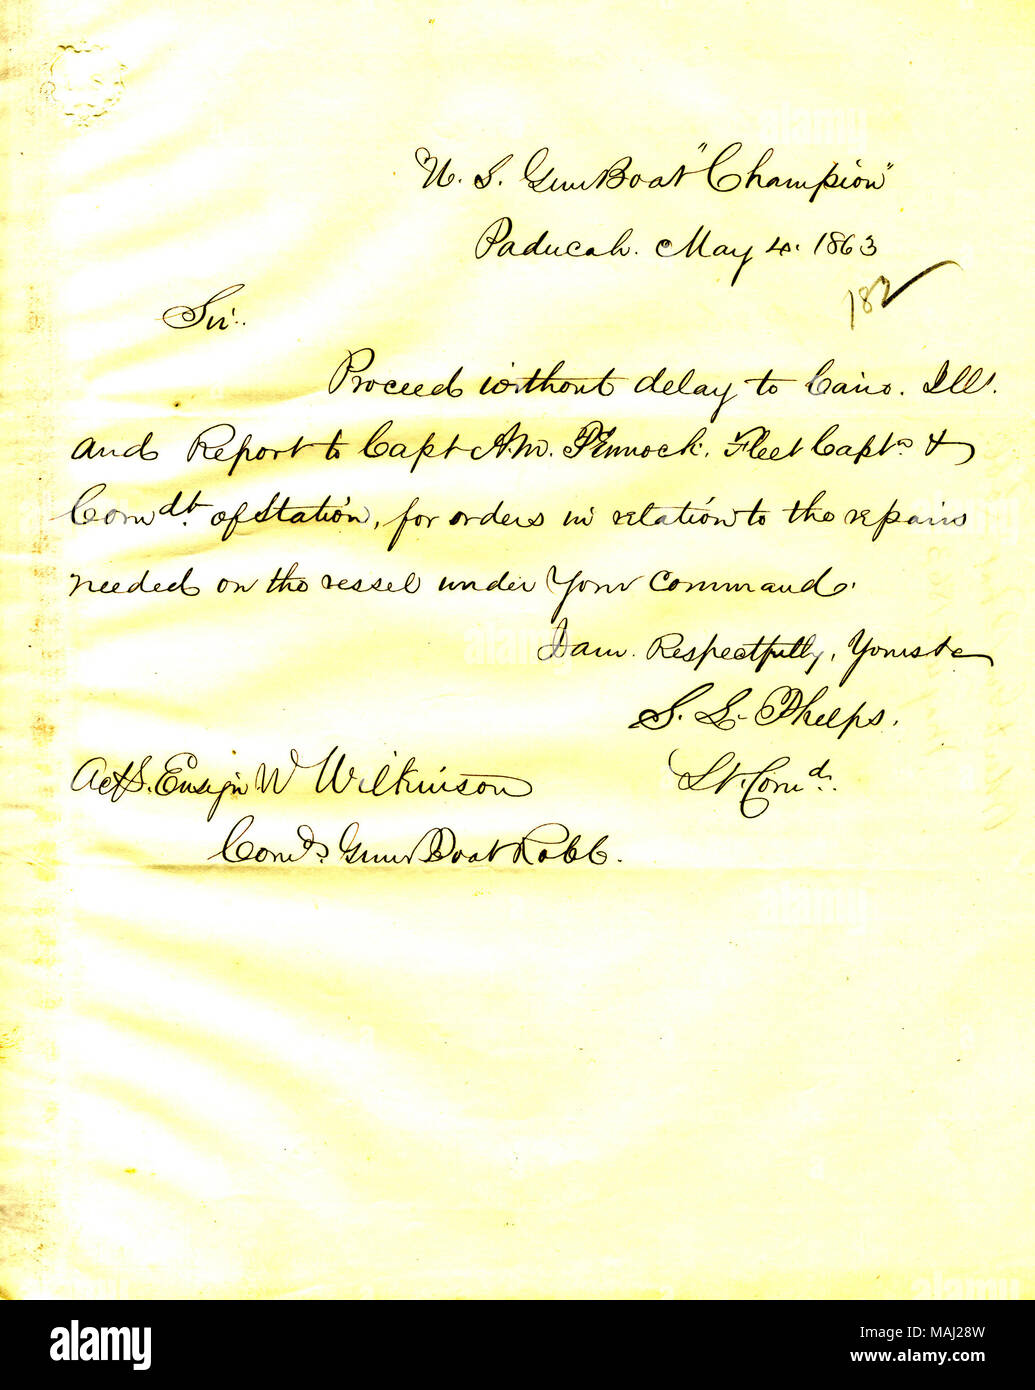 U. S. GunBoat "Champion"
Paducah. May 4. 1863
182
Sir..
Proceed without delay to Cairo. Ill.
and Report to Capt A.M. Pennock. Fleet Capt. &
Comdt. of Station, for orders in relation to the repairs
needed on the vessel under Your Command.
I am. Respectfully, Yours &c
S. L. Phelps.
Lt. Comd.
Act. Ensign W Wilkinson
Comd. Gun Boat Robb.
alamy
Image ID: MAJ28W
www.alamy.com